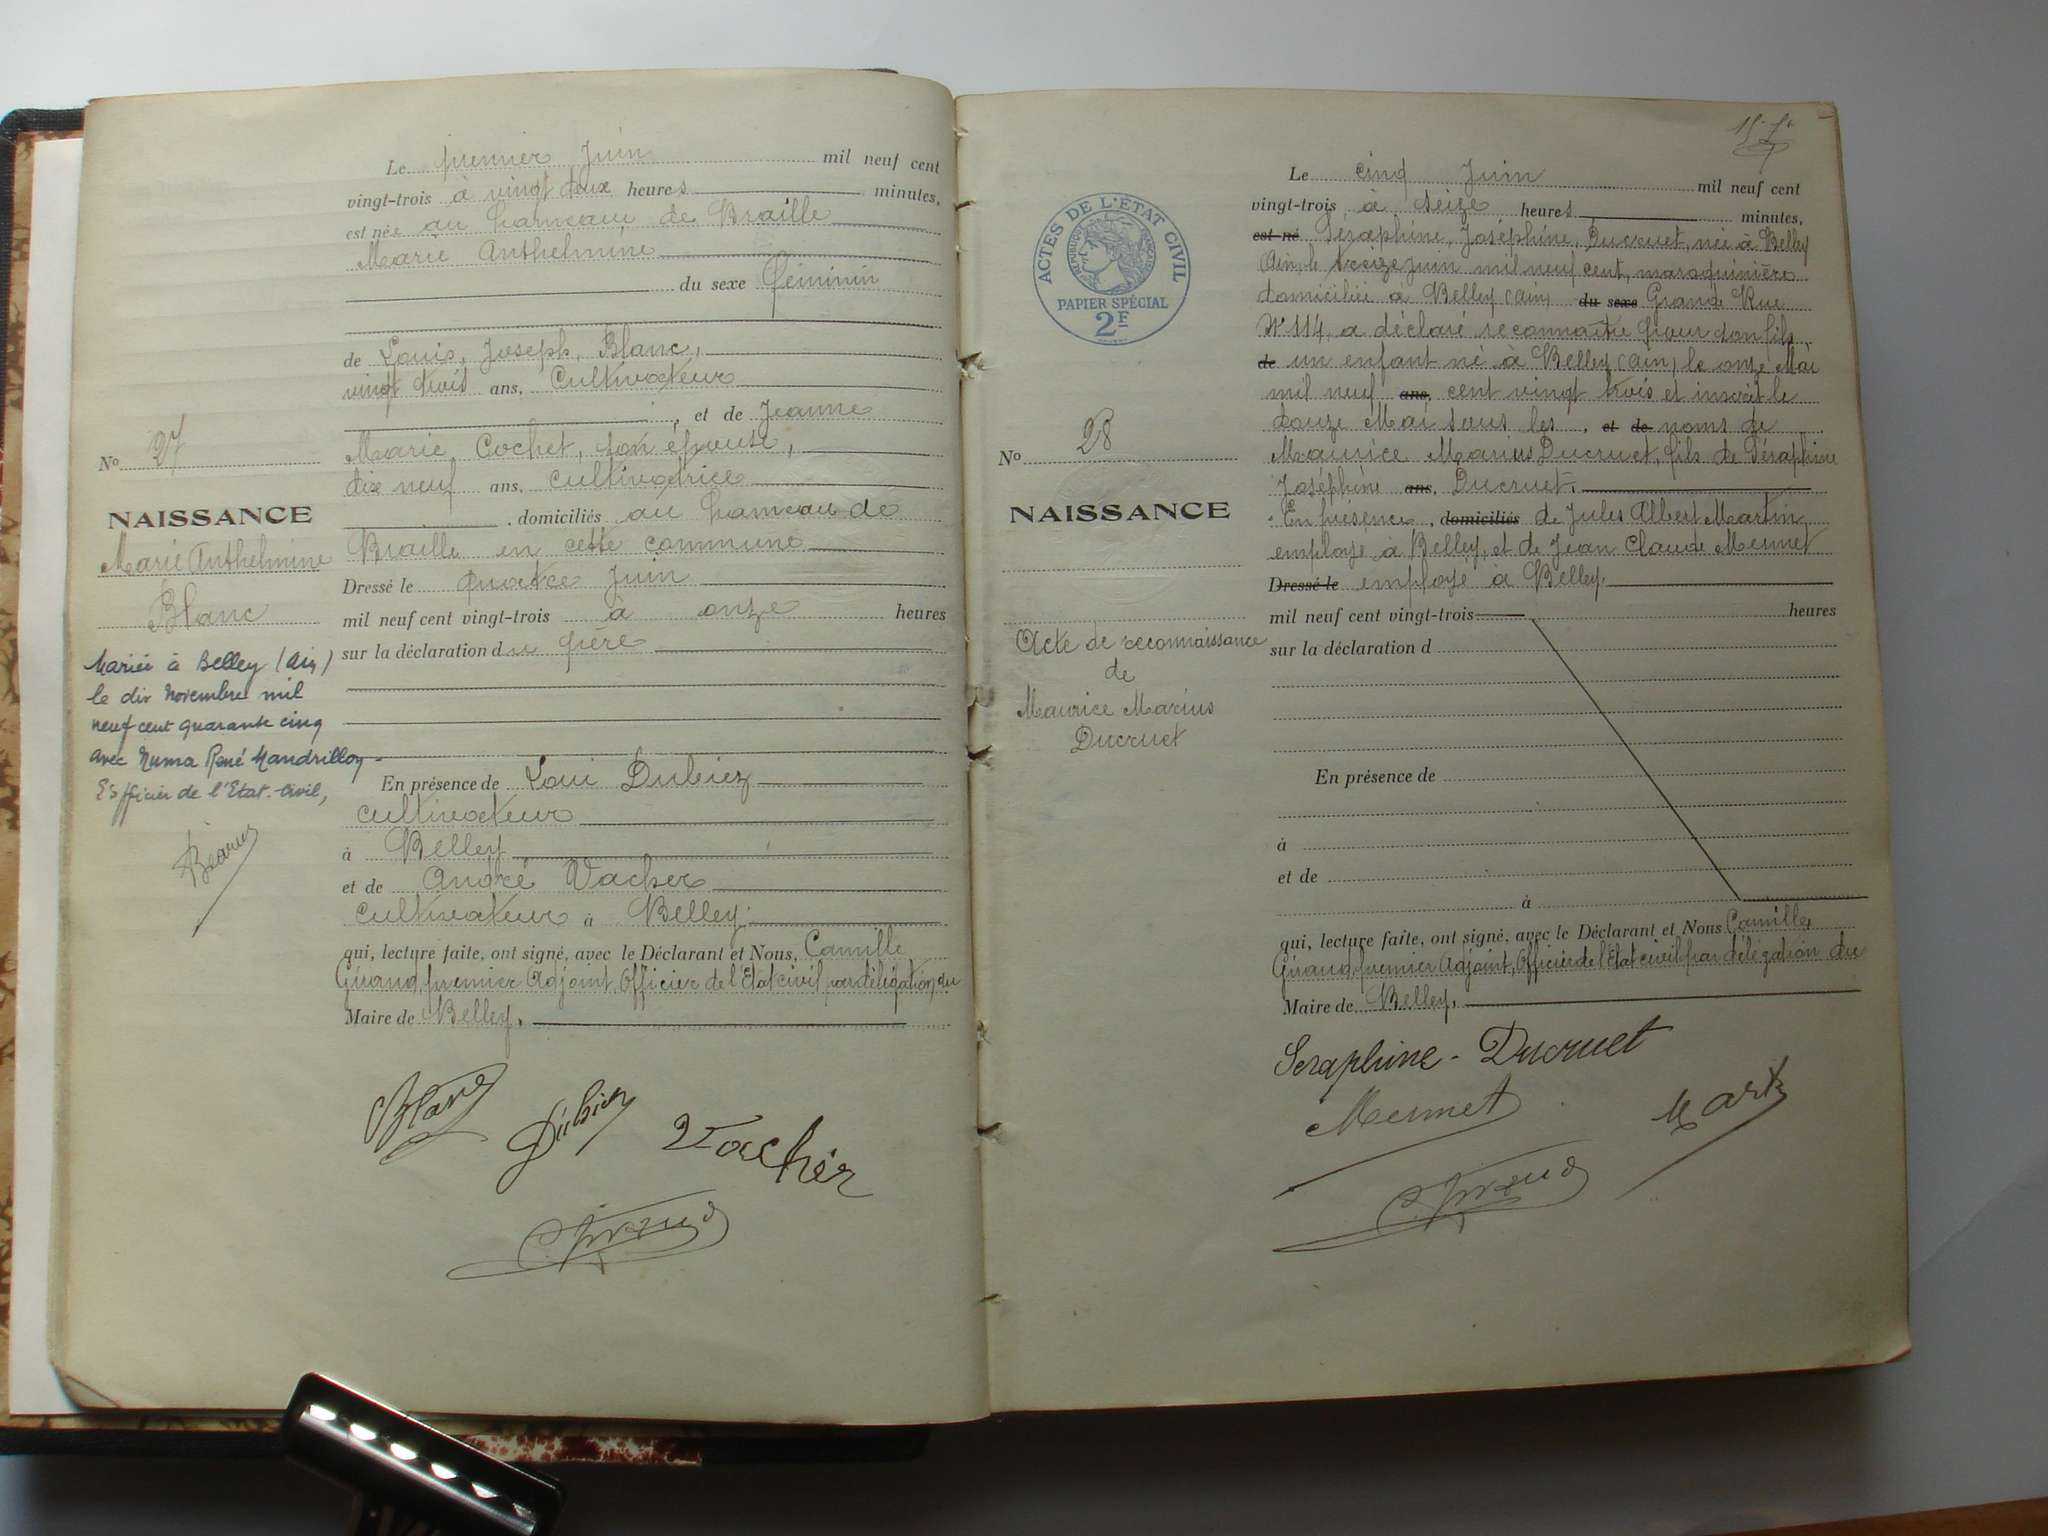 Le premier Juin mil neuf cent
vingt-trois à vingt deux heures minutes,
est née au hameau de Braille
Marie Anthelmine
du sexe féminin
de Louis, Joseph, Blanc,
vingt trois ans, Cultivateur
, et de Jeanne
Marie Cochet, son épouse,
dix neuf ans, cultivatrice
, domiciliés au hameau de
Braille en cette commune
Dressé le quatre Juin
mil neuf cent vingt-trois à onze heures
sur la déclaration du père
En présence de Loui Dubiez
cultivateur
à Belley
et de André Vacher
cultivateur à Belley.
qui, lecture faite, ont signé, avec le Déclarant et Nous, Camille
Giraud, premier Adjoint, Officier de l'Etat civil par délégation du
Maire de Belley,
Blanc
Dubiez
Vacher
Giraud
No 27
NAISSANCE
Marie Anthelmine
Blanc
Mariée à Belley (Ain)
le dix Novembre mil
neuf cent quarante cinq
avec Numa René Mandrillon
L'officier de l'Etat-civil,
ACTES DE L'ÉTAT CIVIL
RÉPUBLIQUE FRANÇAISE
PAPIER SPÉCIAL
2F
No 28
NAISSANCE
Acte de reconnaissance
de
Maurice Marius
Ducruet
Le cinq Juin mil neuf cent
vingt-trois, à seize heures minutes,
est né Séraphine, Joséphine, Ducruet, née à Belley
Ain, le treize juin mil neuf cent, maroquinière
domiciliée à Belley (Ain) du sexe Grande Rue
N° 114, a déclaré reconnaître pour son fils
de un enfant né à Belley (Ain) le onze Mai
mil neuf ans, cent vingt trois et inscrit le
douze Mai sous les , et de noms de
Maurice Marius Ducruet, fils de Séraphine
Joséphine ans, Ducruet.
En présence , domiciliés de Jules Albert Martin
employé à Belley, et de Jean Claude Mermet
Dressé le employé à Belley.
mil neuf cent vingt-trois heures
sur la déclaration d
En présence de
à
et de
à
qui, lecture faite, ont signé, avec le Déclarant et Nous Camille
Giraud, premier Adjoint, Officier de l'Etat civil par délégation du
Maire de Belley,
Seraphine - Ducruet
Mermet
Giraud